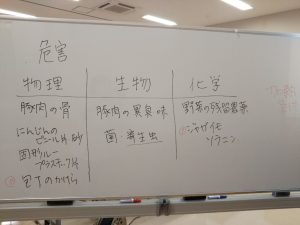 危害
物理 生物 化学
豚肉の骨 豚肉の異臭味 野菜の残留農薬
にんじんの ビニール片 砂 菌・寄生虫 ジャガイモ
ソラニン
固形ルー
プラスチック片
包丁のかけら